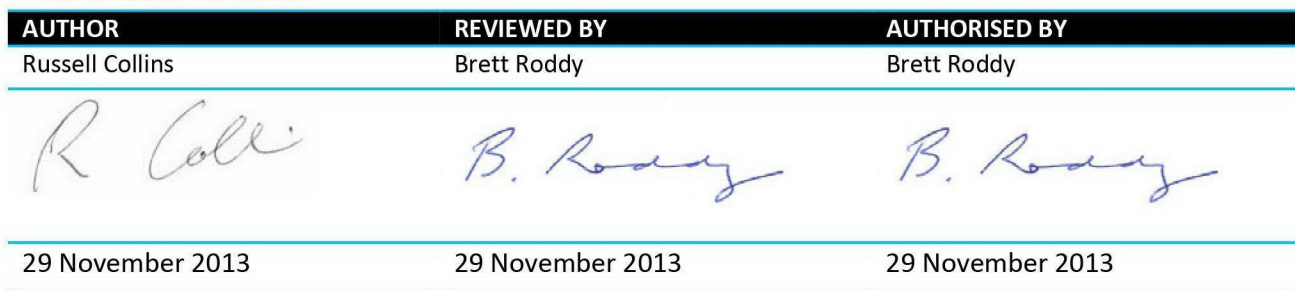 AUTHOR REVIEWED BY AUTHORISED BY
Russell Collins Brett Roddy Brett Roddy
R Colli B. Roddy B. Roddy
29 November 2013 29 November 2013 29 November 2013